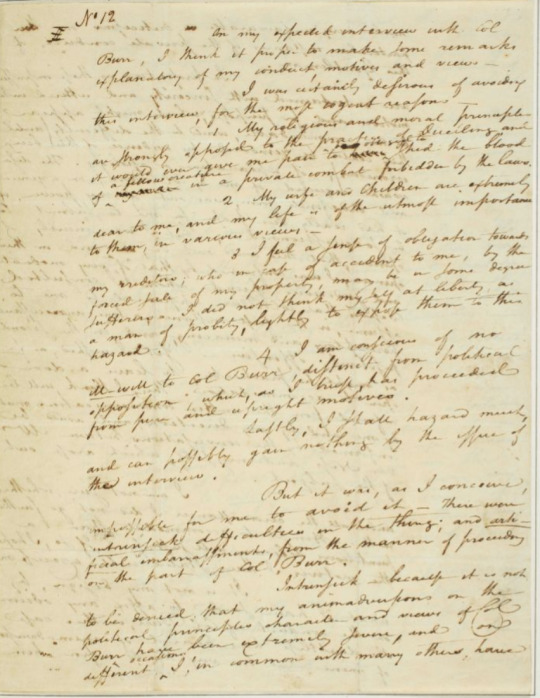 No 12
On my expected interview with Col
Burr, I think it proper to make some remarks
explanatory of my conduct, motives and views—
I was certainly desirous of avoiding
this interview, for the most cogent reasons—
1 My religious and moral principles
are strongly opposed to the practice of Duelling and
it would ever give me pain to be obliged to shed the blood
of a fellow creature in a private combat forbidden by the laws.
2 My wife and Children are extremely
dear to me, and my life is of the utmost importance
to them, in various views—
3 I feel a sense of obligation towards
my creditors; who in case of accident to me, by the
forced sale of my property, may be in some degree
sufferers. I did not think myself at liberty, as
a man of probity, lightly to expose them to this
hazard.
4 I am conscious of no
ill-will to Col Burr, distinct from political
opposition, which, as I trust, has proceeded
from pure and upright motives.
Lastly, I shall hazard much,
and can possibly gain nothing by the issue of
the interview.
But it was, as I conceive,
impossible for me to avoid it— there were
intrinsick difficulties in the thing; and arti-
ficial embarrassments, from the manner of proceeding
on the part of Col Burr.
Intrinsick— because it is not
to be denied, that my animadversions on the
political principles character and views of Col
Burr have been extremely severe, and on
different occasions I, in common with many others, have